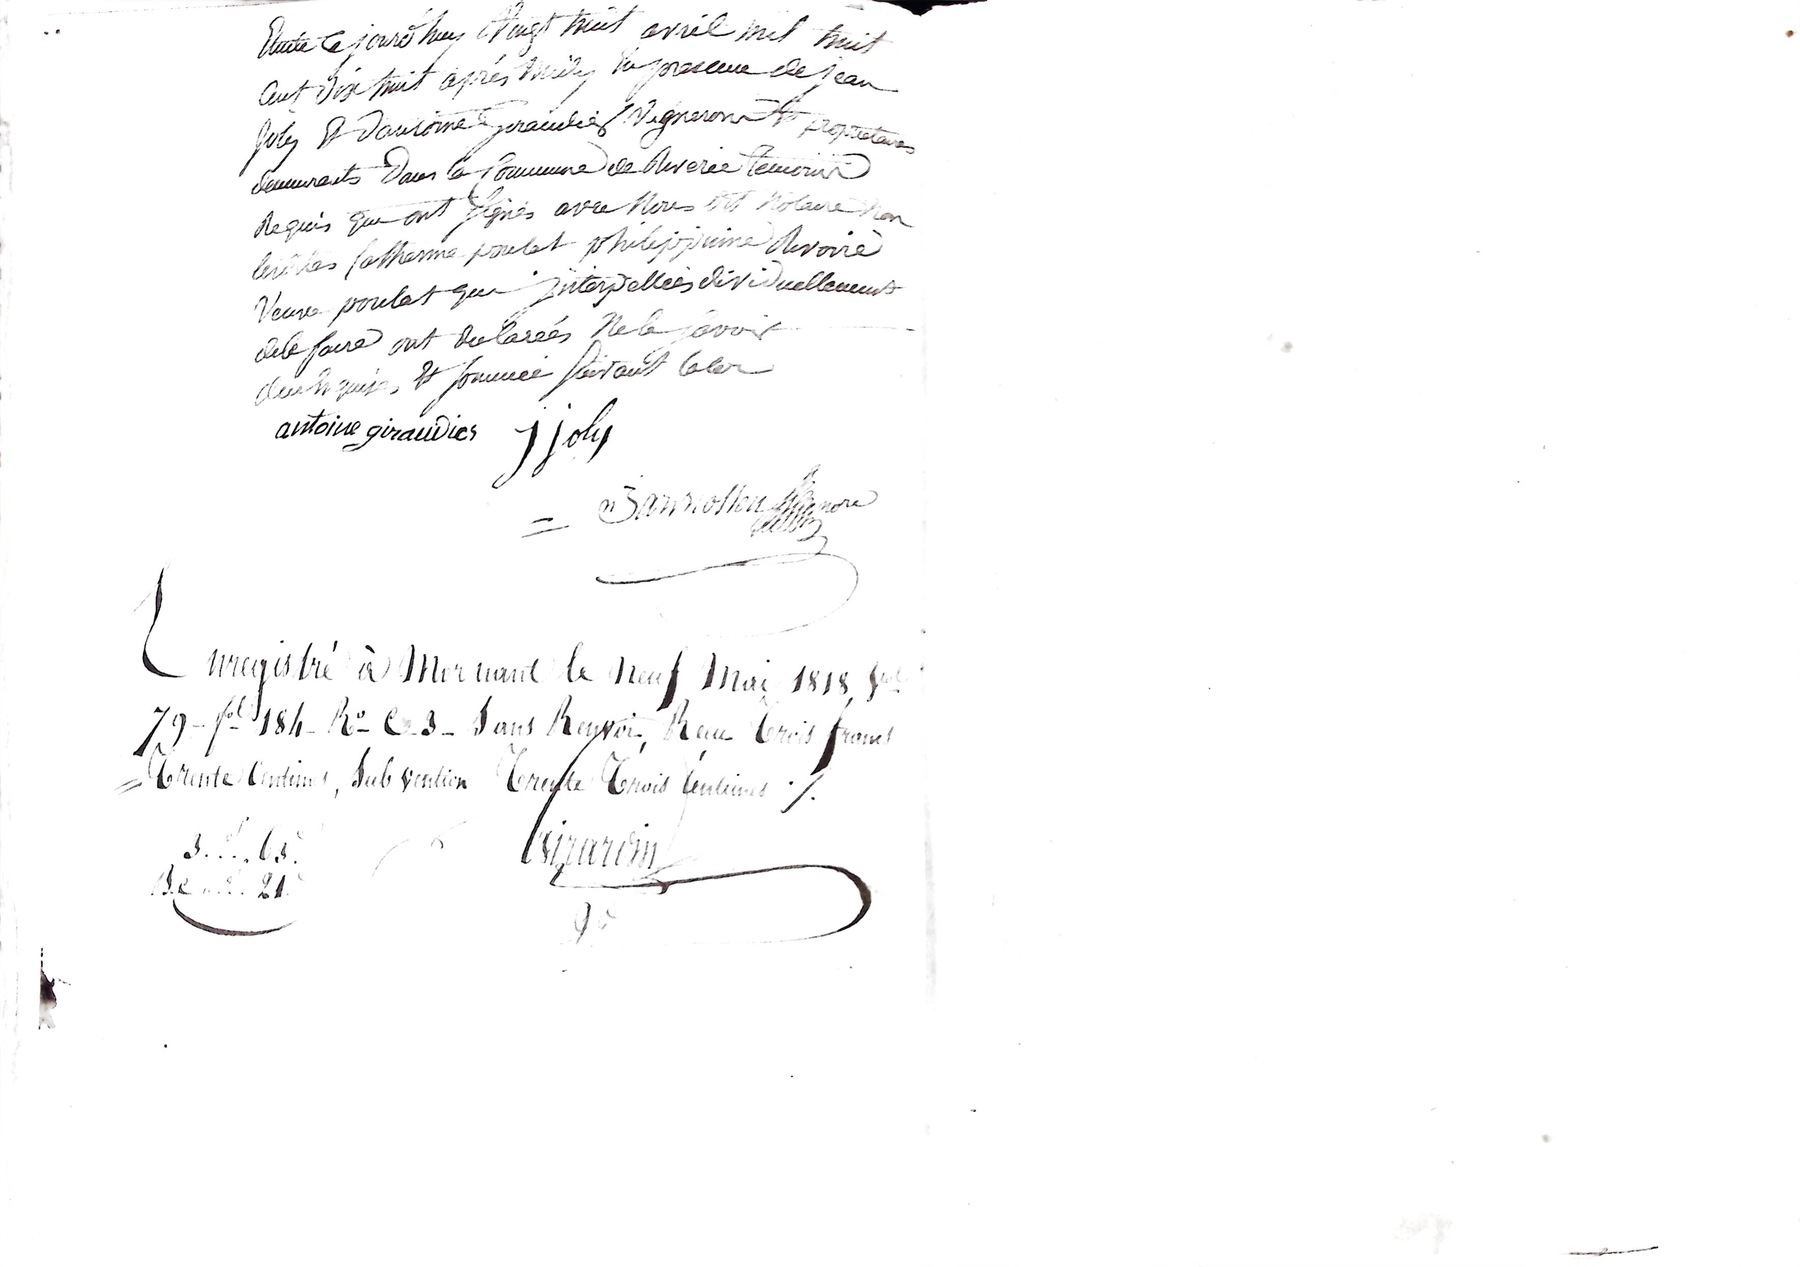 Etude ce jourd'huy Vingt huit avril mil huit
Cent dix huit après midy En presence de jean
joly Et d'antoine giraudier Vignerons Et proprietaires
demeurants Dans la Commune de Riverie temoins
Requis qui ont Signés avec Nous dit Notaire Non
Catherine poulat philippine Rivoire
Veuve poulat qui interpellées dividuellement
de le faire ont declarées Ne le savoir
requises Et sommée suivant la loi
antoine giraudier j joly
Enregistré à Mornant le Neuf Mai 1818, Vol
79 - fol 184 - Ro C 3 - Sans Renvoi, Reçu trois francs
Trente Centimes, Subvention Trente Trois Centimes ./.
3. f. 63.
21.
Girardin